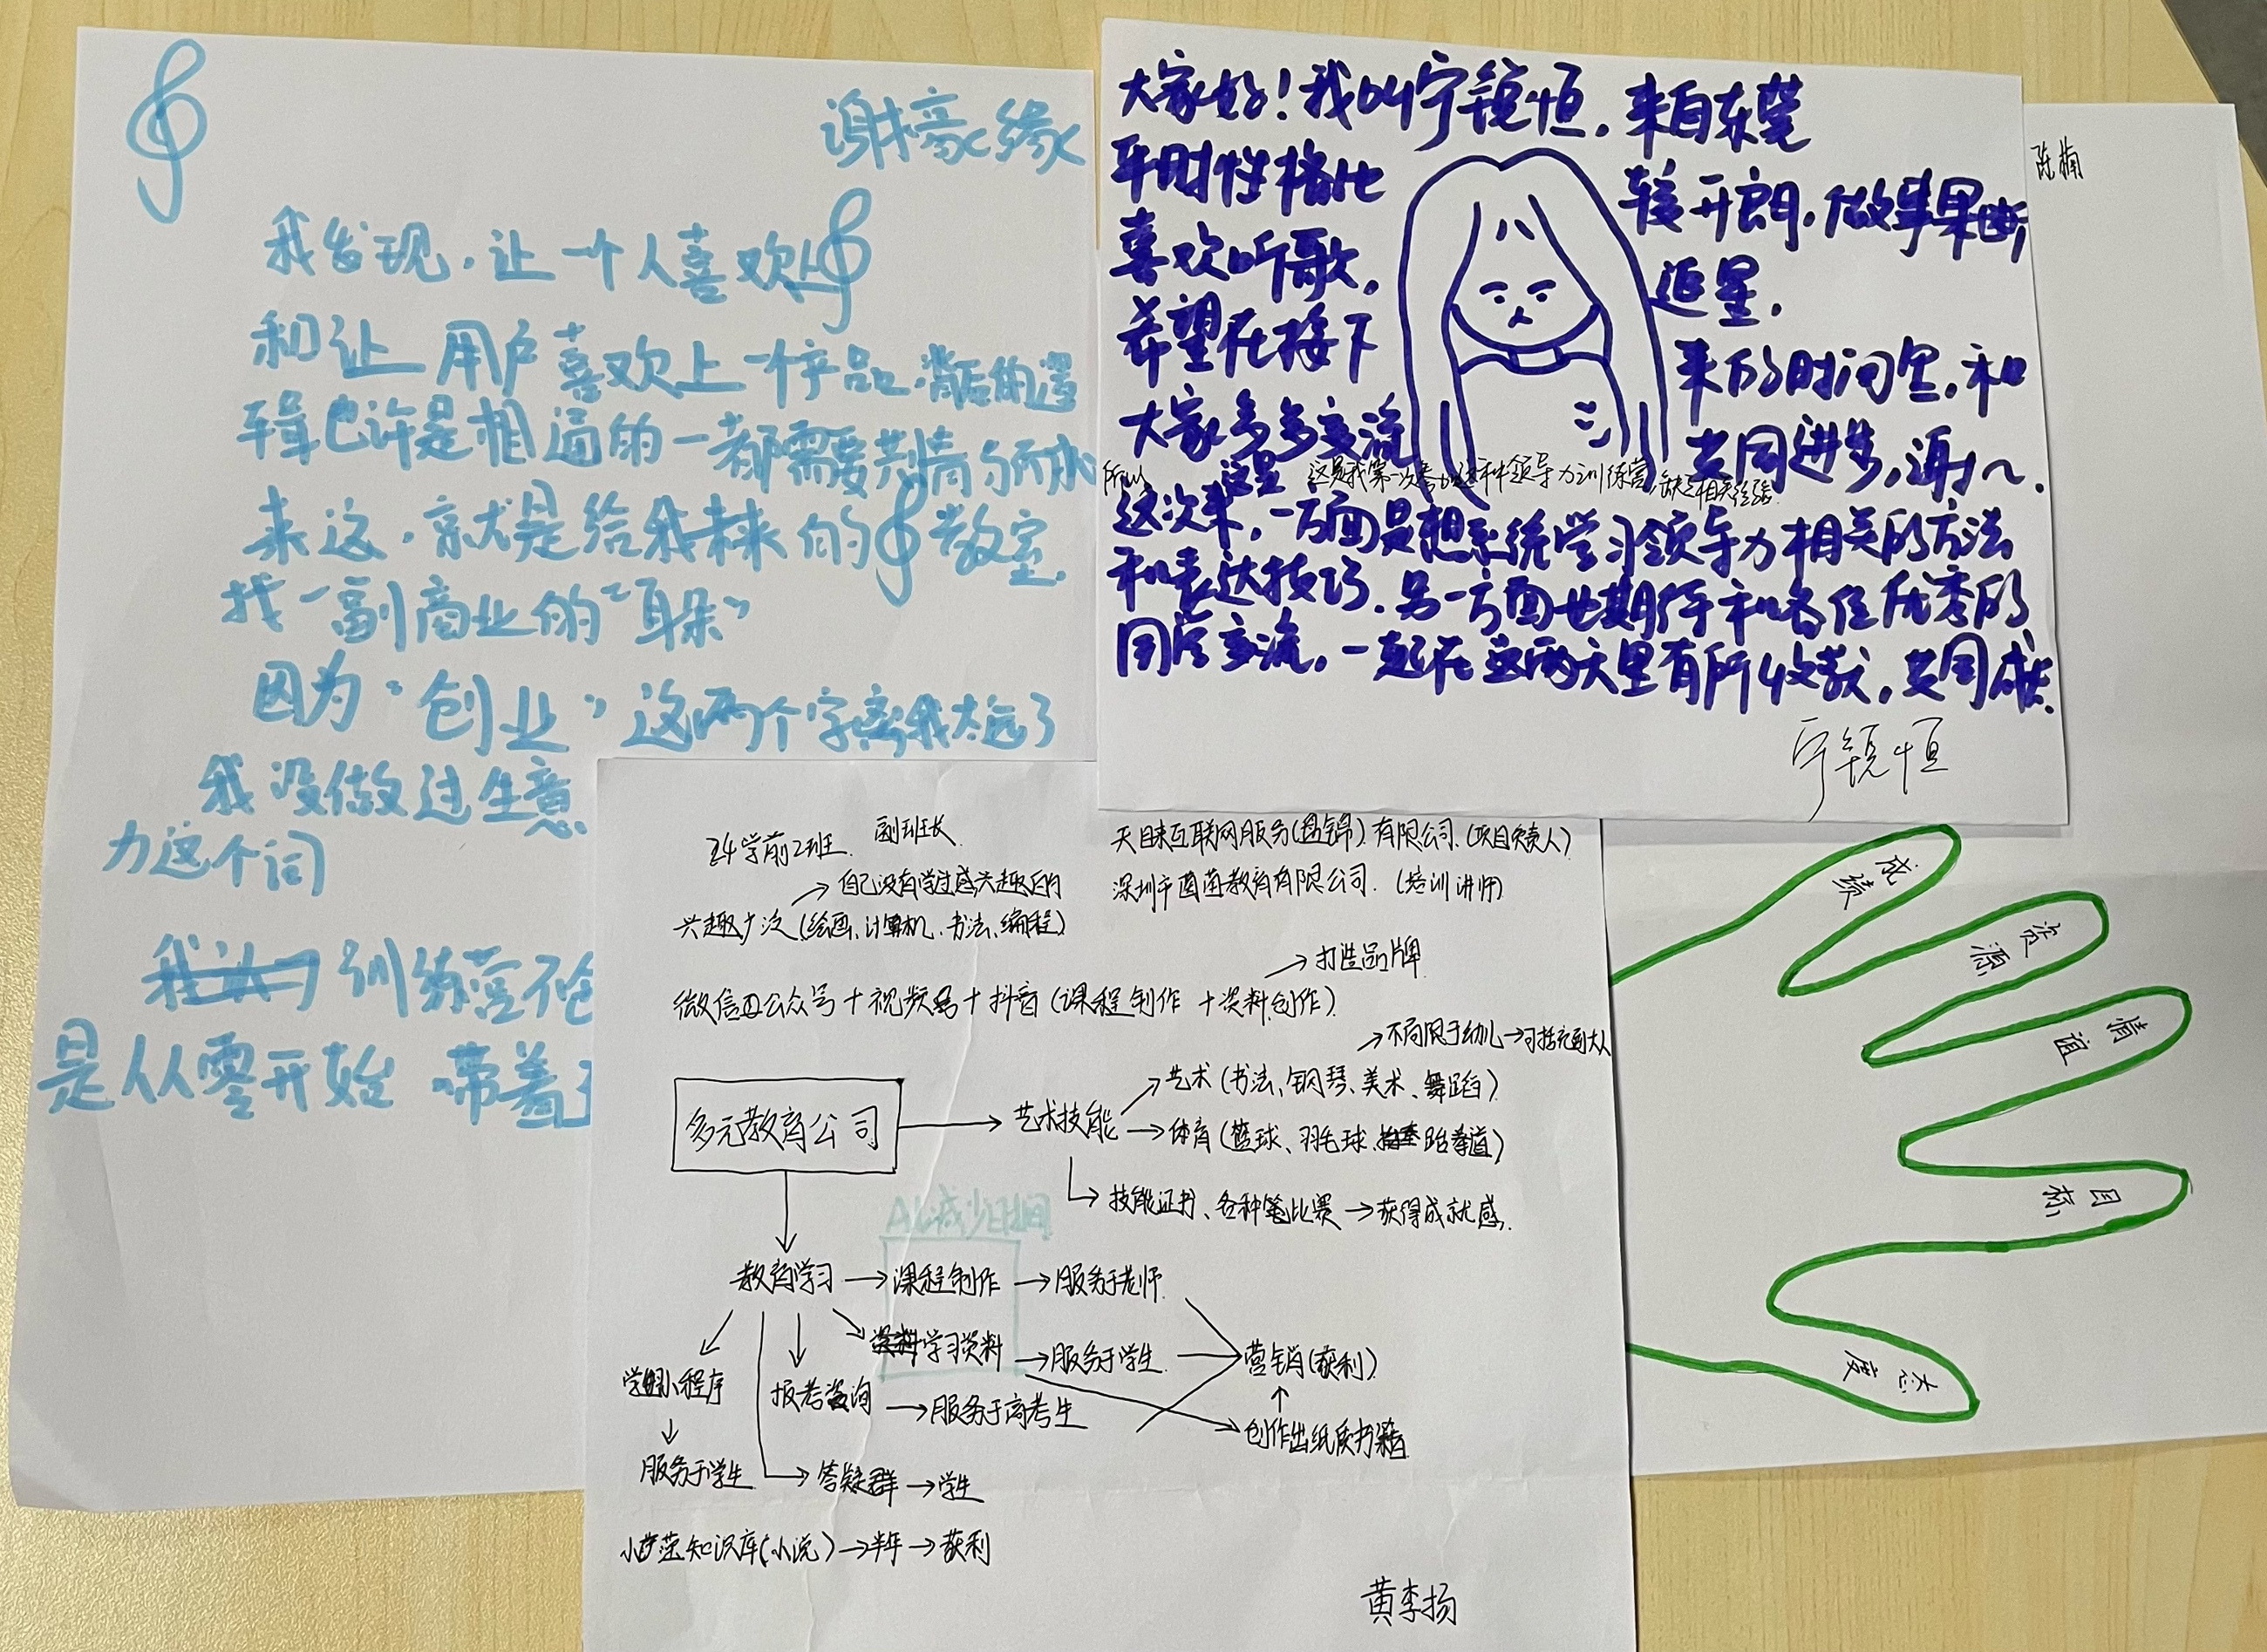 谢檺缘
我发现,让一个人喜欢上
和让用户喜欢上一个产品,背后的逻
辑也许是相通的一都需要共情与耐心
来这,就是给我未来的 教室
找一副商业的“耳朵”
因为“创业”这两个字离我太远了
我没做过生意
力这个词
训练营不仅
是从零开始 带着
大家好!我叫宁镜恒,来自东莞
平时性格比较开朗,做事果断
喜欢听歌,追星,
希望在接下来的时间里,和
大家多多交流共同进步,谢谢~.
所以 这是 这是我第一次参加这种领导力训练营,缺乏相关经验.
这次来,一方面是想系统学习领导力相关的方法
和表达技巧.另一方面也期待和各位优秀的
同学交流,一起在这两天里有所收获,共同成长.
宁镜恒
陈楠
成绩
资源
情谊
目标
态度
24学前2班. 副班长
→自己没有学过感兴趣的
兴趣广泛(绘画、计算机、书法、编程)
天目来互联网服务(盘锦)有限公司.(项目负责人)
深圳市 教育有限公司.(培训讲师)
→打造品牌
微信公众号+视频号+抖音(课程创作+资料创作)
→不局限于幼儿→可拓充到大人
多元教育公司→艺术技能
→艺术(书法、钢琴、美术、舞蹈)
→体育(篮球、羽毛球、跆拳道)
→技能证书、各种笔比赛→获得成就感.
AI减少时间
教育学习→课程创作→服务于老师
学习资料→服务于学生
营销(获利)
学 小程序
报考咨询→服务于高考生
创作出纸质书籍
服务于学生
→答疑群→学生
小 知识库(小说)→半年→获利
黄李扬